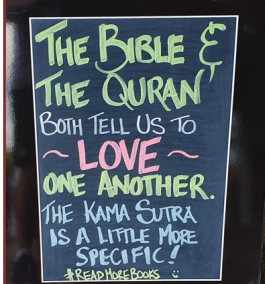 THE BIBLE &
THE QURAN
BOTH TELL US TO
~ LOVE ~
ONE ANOTHER.
THE KAMA SUTRA
IS A LITTLE MORE
SPECIFIC!
#READMOREBOOKS :)